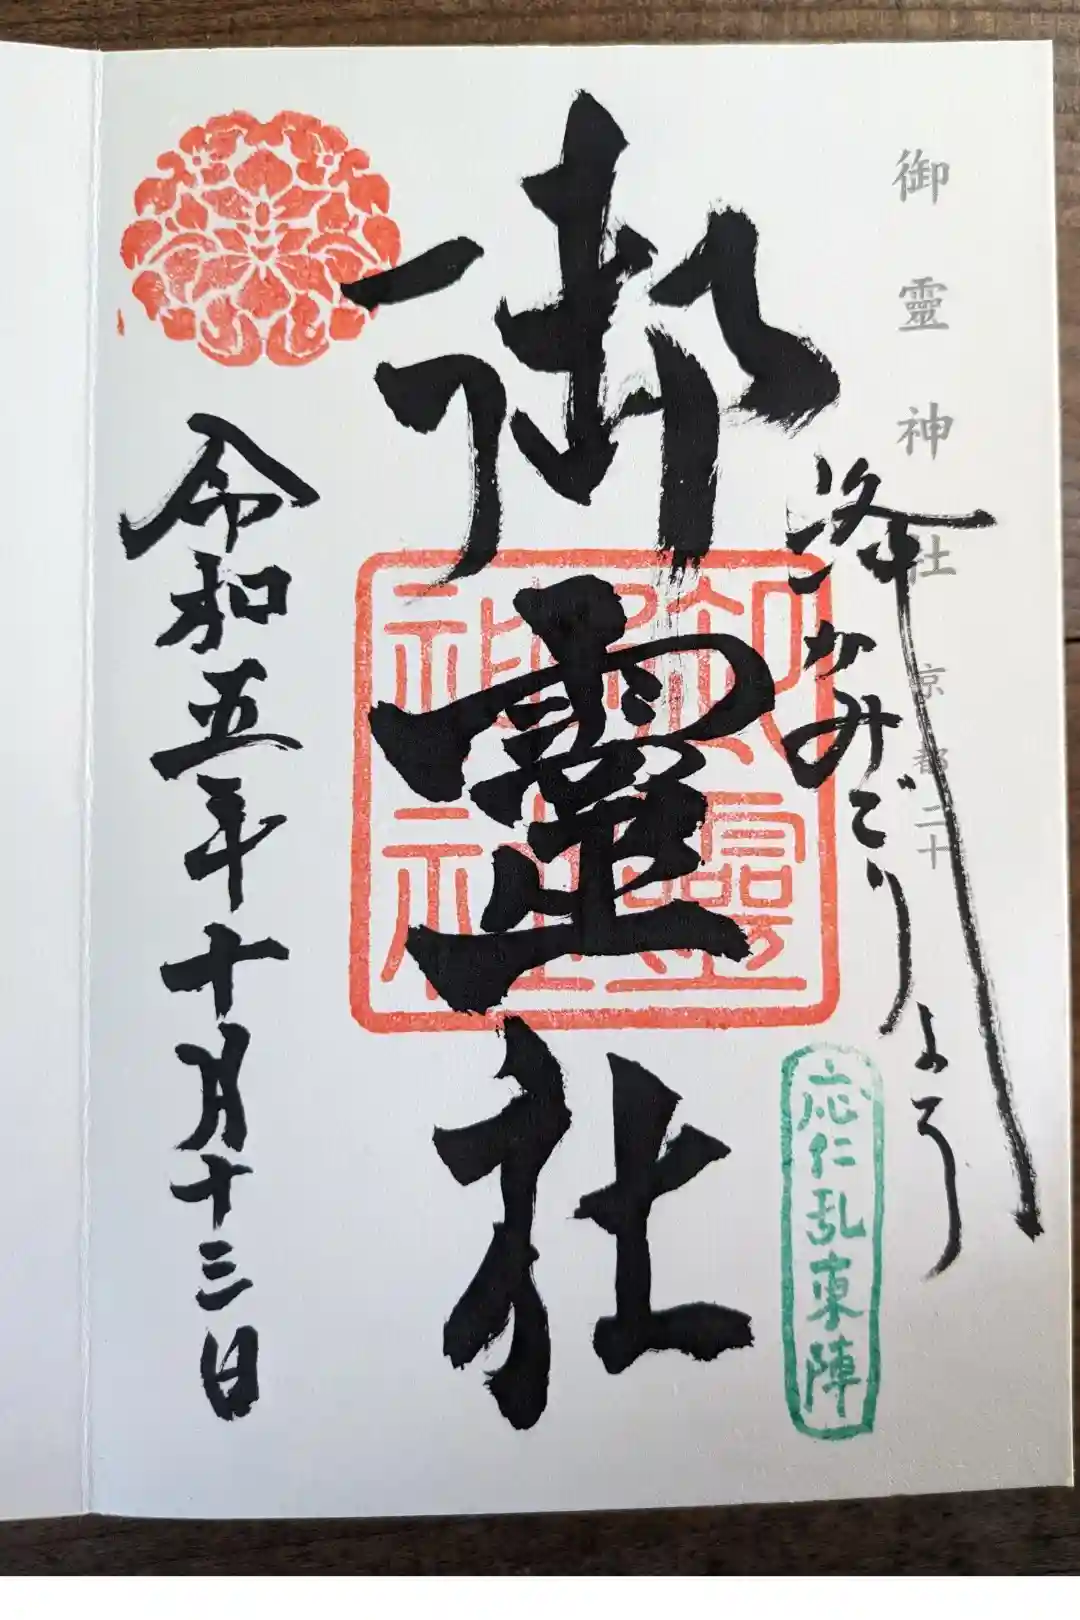 御靈神社 京都二十
かみごりょう
応仁乱東陣
御靈社
御靈
神社
令和五年十月十三日